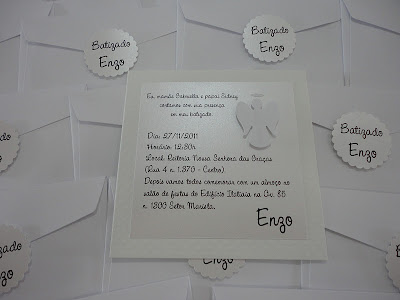 Batizado
Enzo
Batizado
Enzo
Eu, mamãe Gabriella e papai Sidney
contamos com sua presença
em meu batizado.
Dia: 27/11/2011
Horário: 12:30h
Local: Reitoria Nossa Senhora das Graças
(Rua 4 n. 1.370 - Centro)
Depois vamos todos comemorar com um almoço no
salão de festas do Edifício Italiaia na Av. 85
n. 1200 Setor Marista.
Enzo
Batizado
Enzo
Batizado
Enzo
Batizado
Enzo